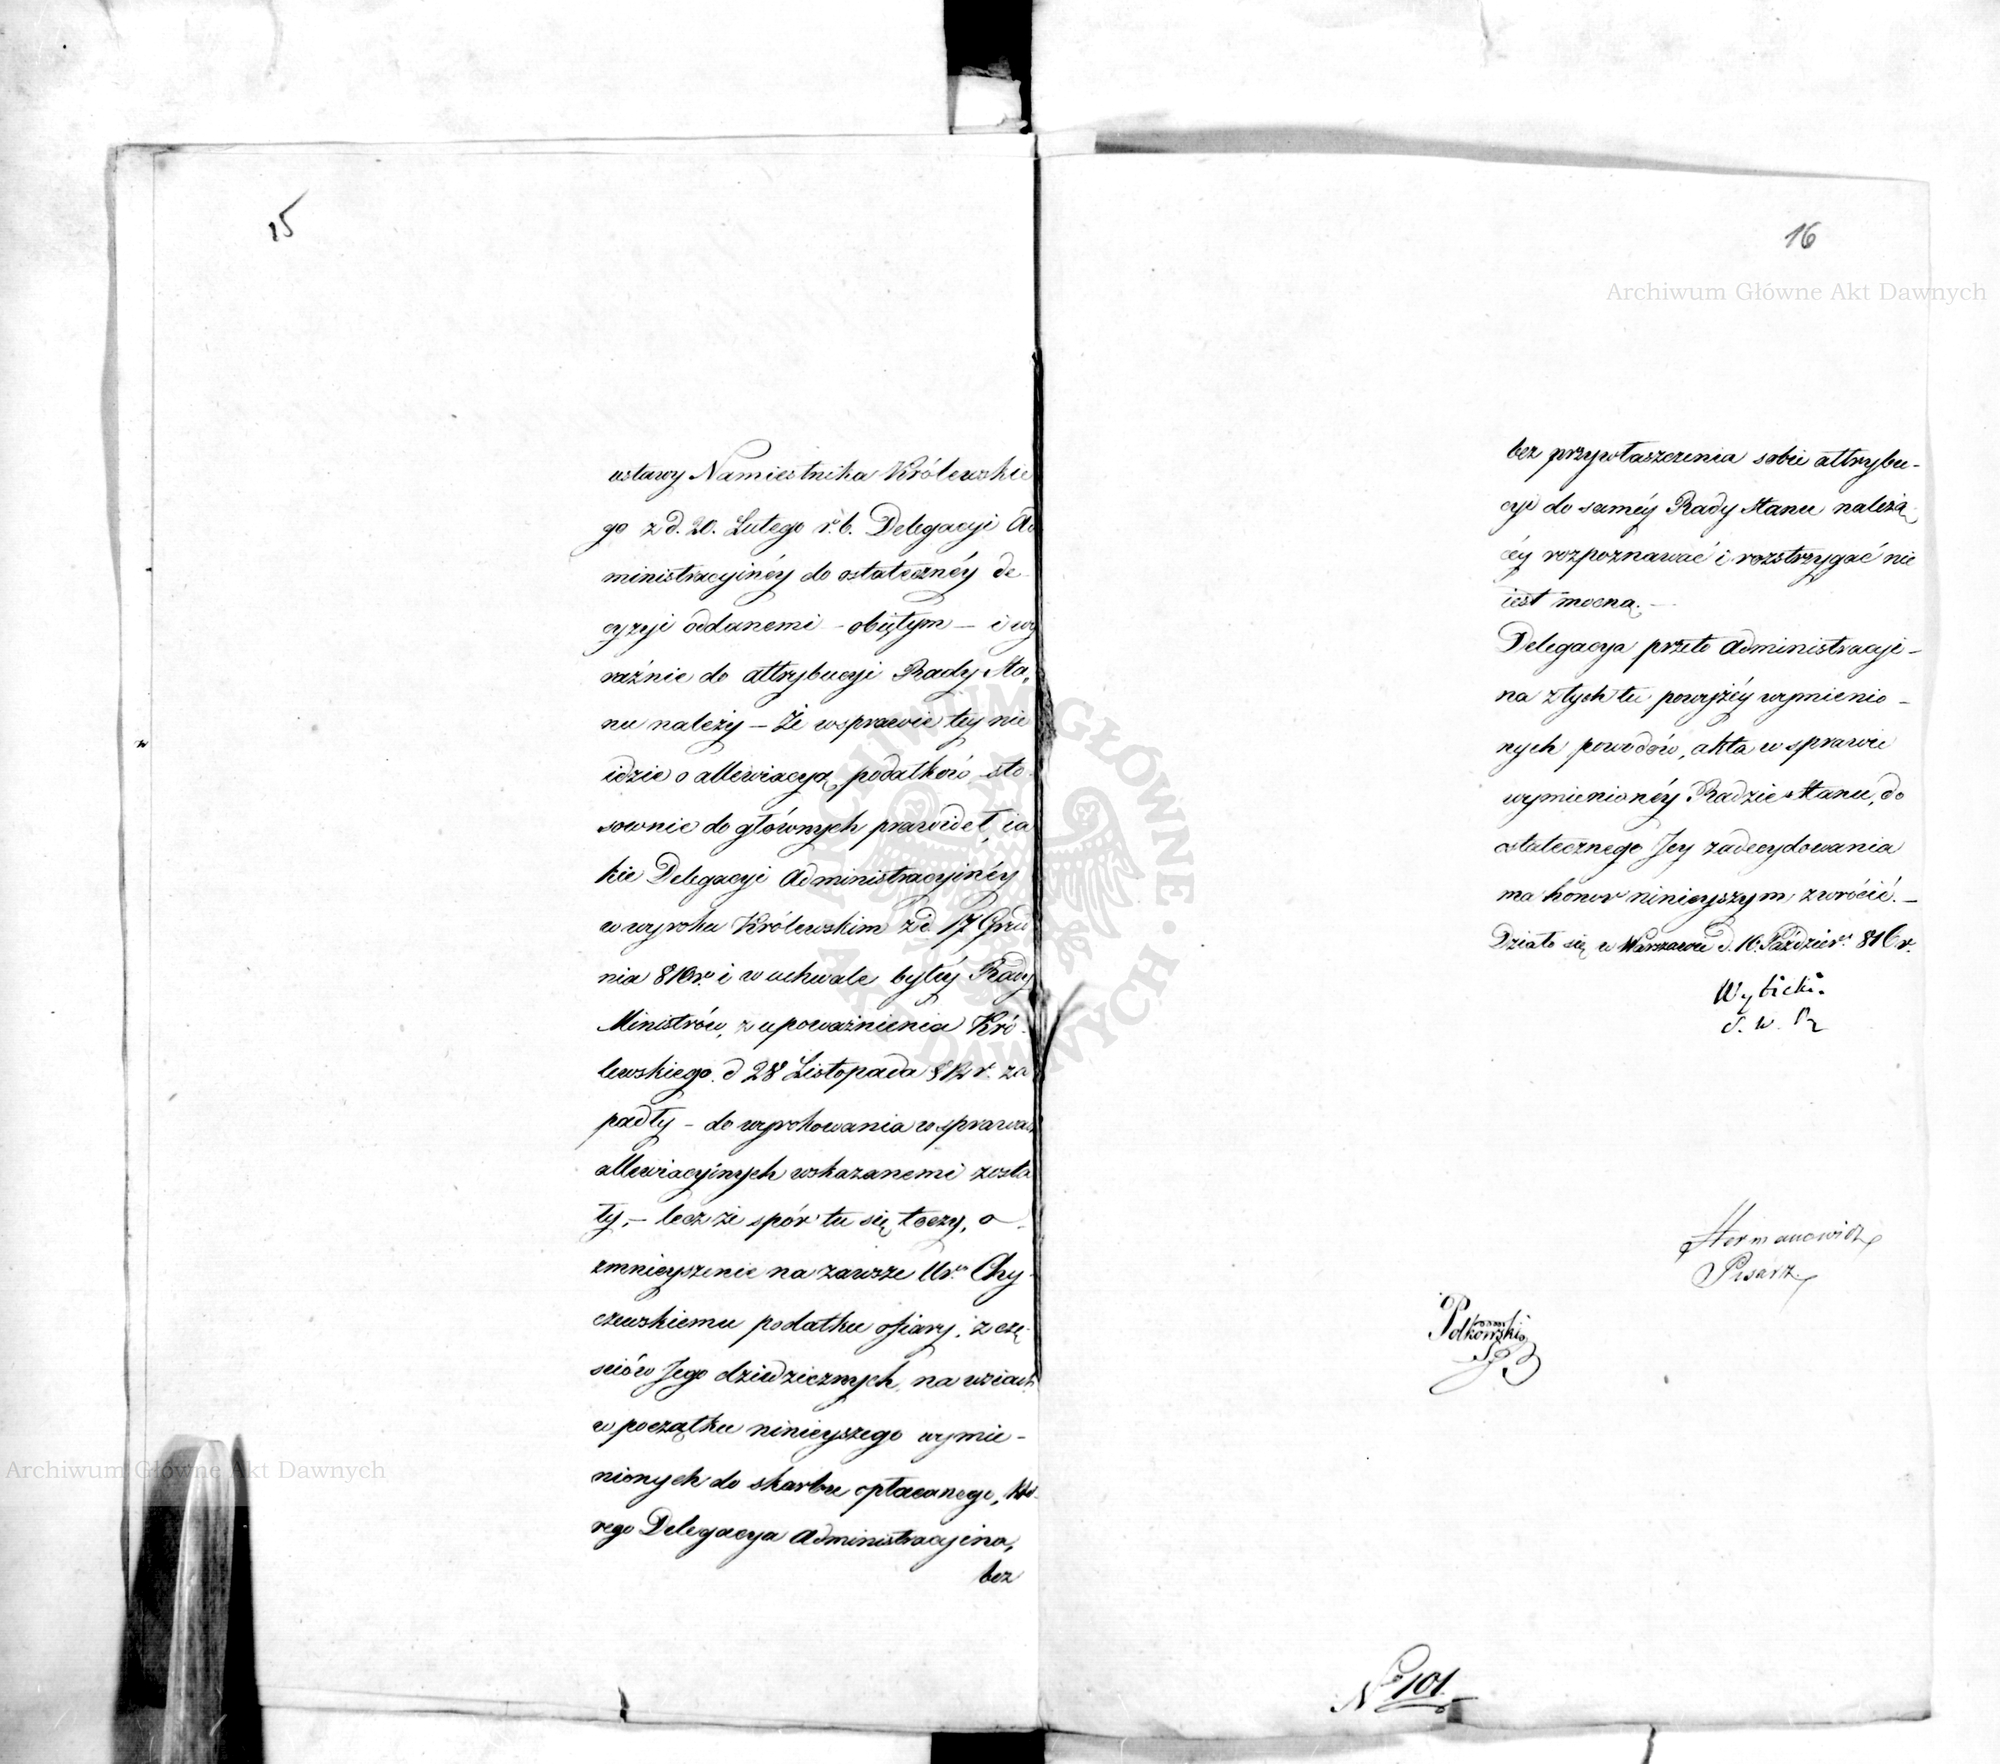 15
ustawy Namiestnika Królewskie
go z d. 20. Lutego r. b. Delegacyi Ad
ministracyinéy do ostatecznéy de
cyzyi oddanemi - obiętym - i wy
raźnie do attrybucyi Rady Sta,
nu należy - Że w sprawie tey nie
idzie o allewiacyą podatków sto
sownie do głównych prawideł, ia
kie Delegacyi Administracyinéy
w wyroku Królewskim z d. 17 Gru
nia 810 r. i w uchwale byłéy Rady
Ministrów, z upoważnienia Kró-
lewskiego d 28 Listopada 812 r. za
padły - do wyrokowania w sprawach
allewiacyinych wskazanemi zosta
ły, - lecz że spór tu się toczy, o
zmnieyszenie na zawsze Ur. Chy-
czewskiemu podatku ofiary, z czę-
sciów Jego dziedzicznych, na wsiach
w początku ninieyszego wymie-
nionych do skarbu opłacanego, któ-
rego Delegacya Administracyina,
bez
16
bez przywłaszczenia sobie attrybu-
cyi do saméy Rady Stanu należą
céy rozpoznawać i rozstrzygać nie
iest mocną. -
Delegacya przeto Administracyi-
na z tych tu powyżéy wymienio-
nych powodów, akta w sprawie
wymienionéy Radzie Stanu, do
ostatecznego Jey zadecydowania
ma honor ninieyszym zwrócić. -
Działo się w Warszawie d. 16. Paździer. 816 r.
Wybicki.
S. W. Pr
Hermanowicz
Pisarz.
Polkowski
No 101.
Archiwum Główne Akt Dawnych
Archiwum Główne Akt Dawnych
ARCHIWUM GŁÓWNE AKT DAWNYCH